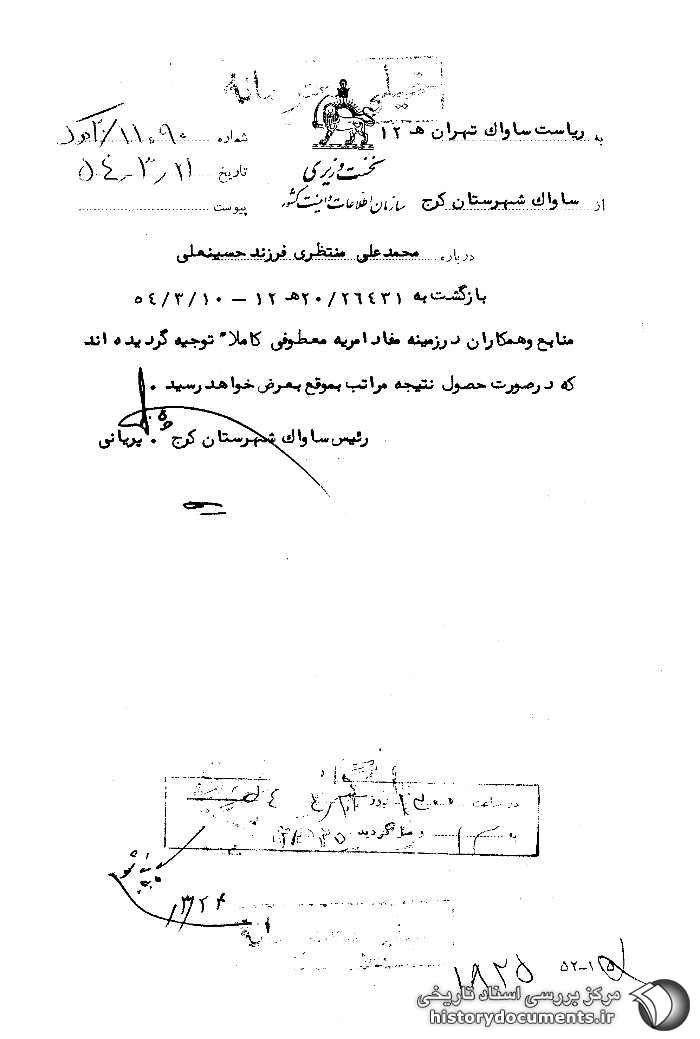 خیلی محرمانه
به ریاست ساواك تهران هـ ۱۲
شماره ۱۱۰۹۰/
نخست وزیری
تاریخ ۵۴-۳-۲۱
از ساواك شهرستان کرج
سازمان اطلاعات و امنیت کشور
پیوست
درباره محمدعلی منتظری فرزند حسینعلی
بازگشت به ۲۰/۲۶۴۳۱هـ ۱۲ – ۵۴/۳/۱۰
منابع وهمکاران درزمینه مفاد امریه معطوفی کاملا" توجیه گردیده اند
که درصورت حصول نتیجه مراتب بموقع بعرض خواهد رسید .
رئیس ساواك شهرستان کرج . پریانی
در ساعت روز
به و صا گردید
۳/۲۴
۱۵-۵۲
۱۸۲۵
مرکز بررسی اسناد تاریخی
historydocuments.ir